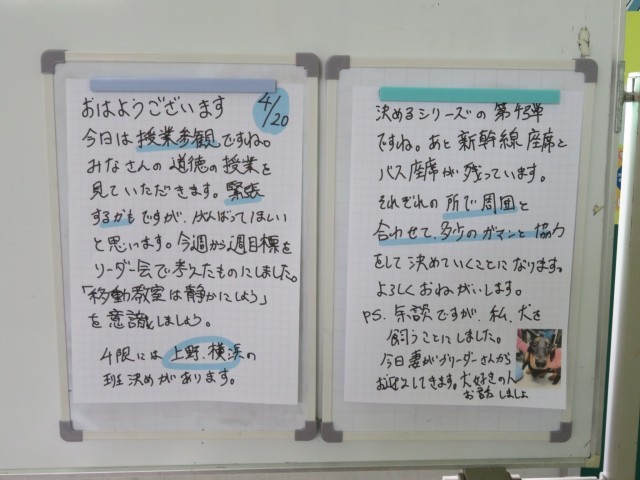 おはようございます
4/20
今日は授業参観ですね。
みなさんの道徳の授業を
見ていただきます。緊張
するかもですが、がんばってほしい
と思います。今週から週目標を
リーダー会で考えたものにしました。
「移動教室は静かにしよう」
を意識しましょう。
4限には上野、横浜の
班決めがあります。
決めるシリーズの第43弾
ですね。あと新幹線座席と
バス座席が残っています。
それぞれの所で周囲と
合わせて、多少のガマンと協力
をして決めていくことになります。
よろしくおねがいします。
PS. 余談ですが、私、犬を
飼うことにしました。
今日妻がブリーダーさんから
してきます。犬好きの人
お話ししましょ